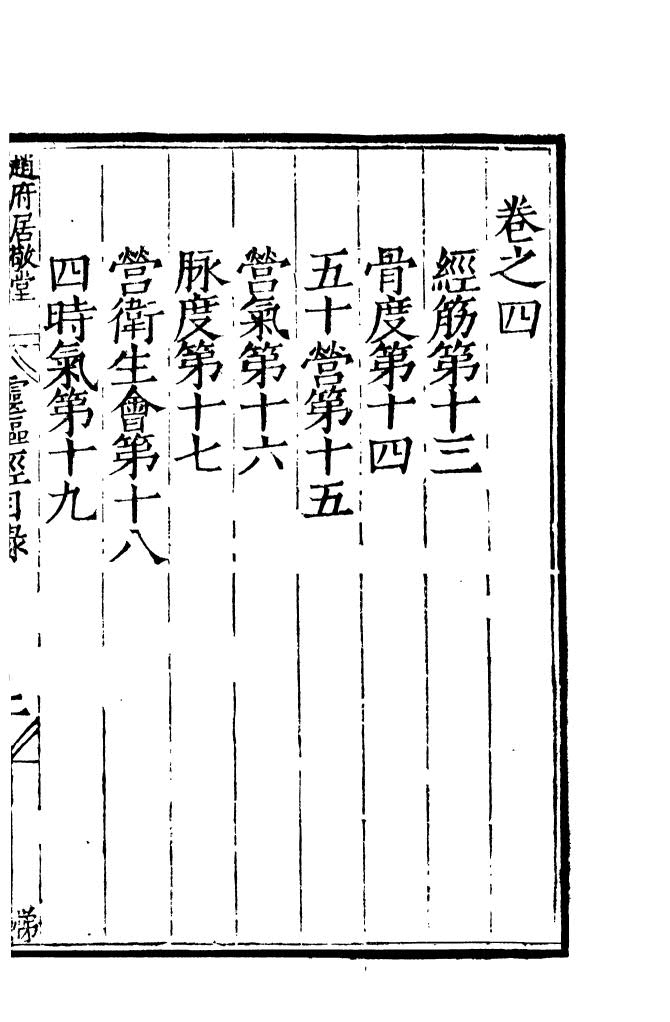 卷之四
經筋第十三
骨度第十四
五十營第十五
營氣第十六
脉度第十七
營衛生會第十八
四時氣第十九
趙府居敬堂
靈樞經目錄